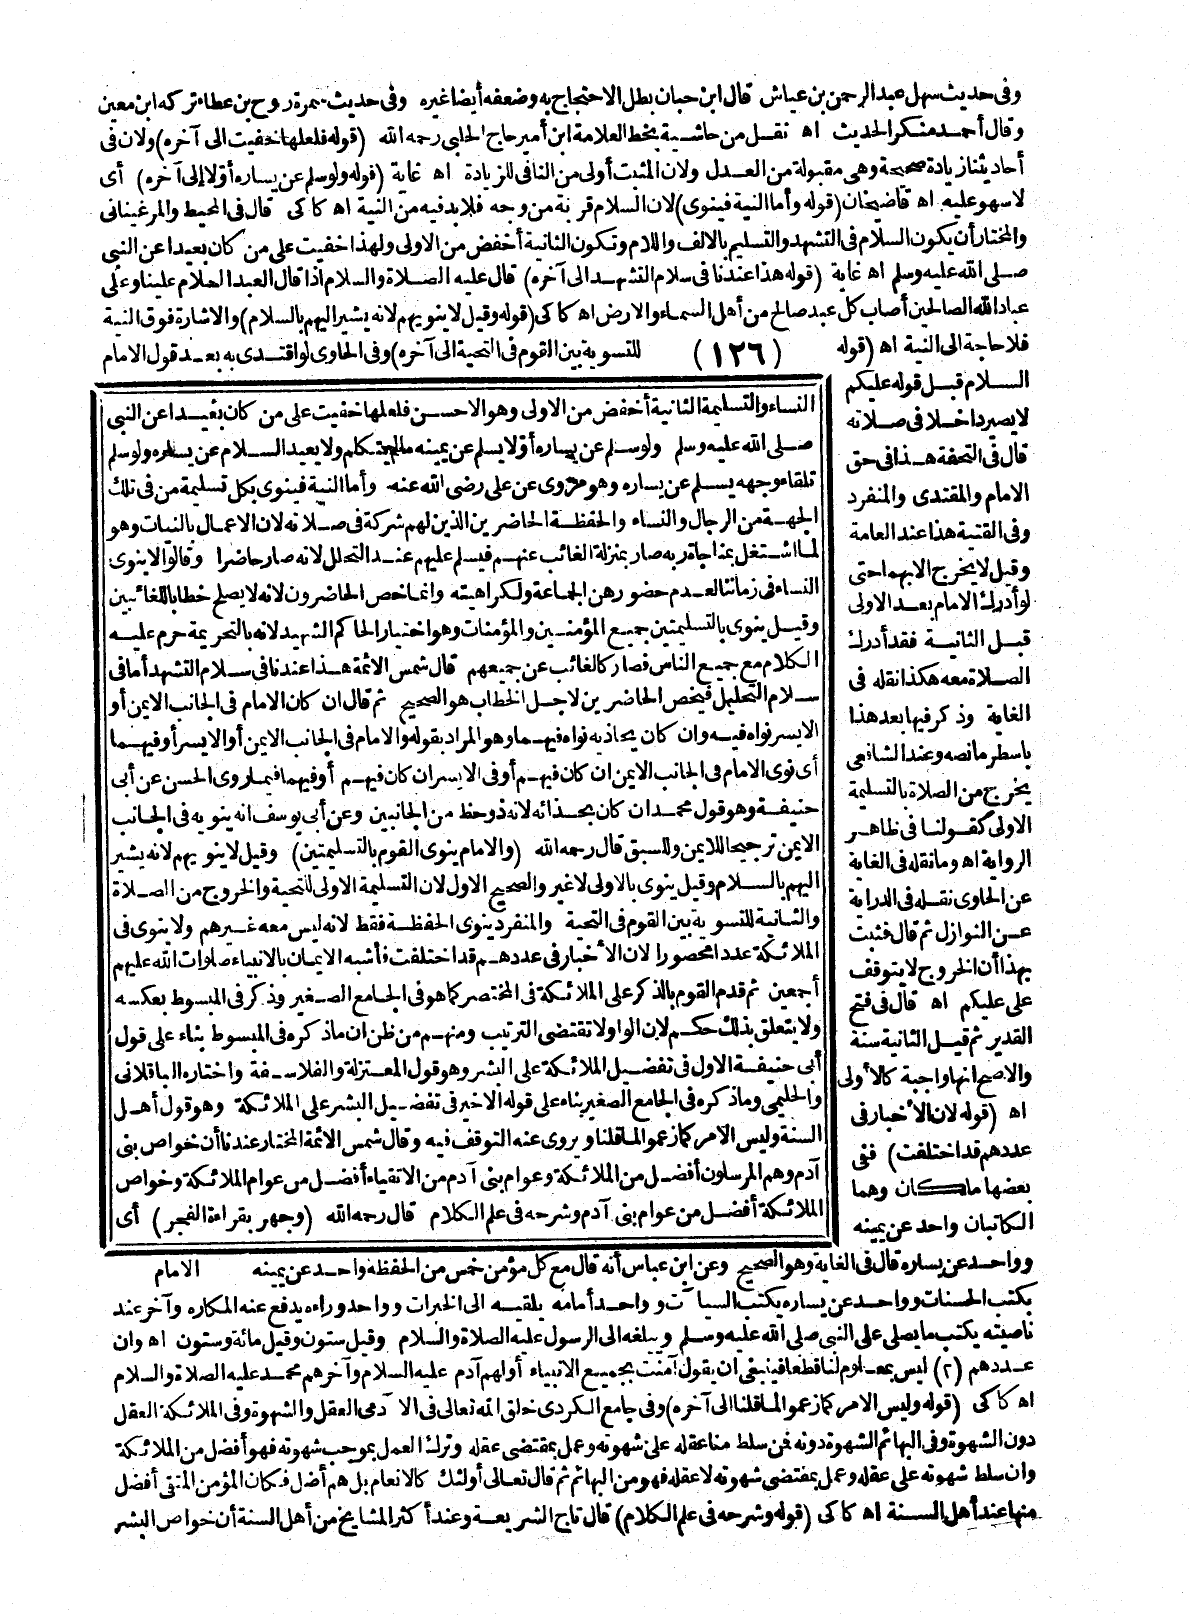 وفى حديث سهل عبد الرحمن بن عياش قال ابن حبان بطل الاحتجاج به وضعفه أيضا غيره وفى حديث سمرة روح بن عطاء تركه ابن معين
وقال أحمد منكر الحديث اه نقل من حاشية بخط العلامة ابن أمير حاج الحلبى رحمه الله (قوله فلعلها خفيت الى آخره) ولان فى
أحاديثنا زيادة صحيحة وهى مقبولة من العدل ولان المثبت أولى من النافى للزيادة اه غاية (قوله ولو سلم عن يساره أولا إلى آخره) أى
لا سهو عليه اه قاضيخان (قوله وأما النية فينوى) لان السلام قربة من وجه فلا بد فيه من النية اه كاكى قال فى المحيط والمرغينانى
والمختار أن يكون السلام فى التشهد والتسليم بالالف واللام وتكون الثانية أخفض من الاولى ولهذا خفيت على من كان بعيدا عن النبى
صلى الله عليه وسلم اه غاية (قوله هذا عندنا فى سلام التشهد الى آخره) قال عليه الصلاة والسلام اذا قال العبد السلام علينا وعلى
عباد الله الصالحين أصاب كل عبد صالح من أهل السماء والارض اه كاكى (قوله وقيل لا ينويهم لانه يشير اليهم بالسلام) والاشارة فوق النية
فلا حاجة الى النية اه (قوله (١٢٦) للتسوية بين القوم فى التحية الى آخره) وفى الحاوى لو اقتدى به بعد قول الامام
السلام قبل قوله عليكم
لا يصير داخلا فى صلاته
قال فى التحفة هذا فى حق
الامام والمقتدى والمنفرد
وفى القنية هذا عند العامة
وقيل لا يخرج الا بهما حتى
لو أدرك الامام بعد الاولى
قبل الثانية فقد أدرك
الصلاة معه هكذا نقله فى
الغاية وذكر فيها بعد هذا
باسطر ما نصه وعند الشافعى
يخرج من الصلاة بالتسليمة
الاولى كقولنا فى ظاهر
الرواية اه وما نقله فى الغاية
عن الحاوى نقله فى الدراية
عن النوازل ثم قال فثبت
بهذا أن الخروج لا يتوقف
على عليكم اه قال فى فتح
القدير ثم قيل الثانية سنة
والاصح انها واجبة كالأولى
اه (قوله لان الأخبار فى
عددهم قد اختلفت) ففى
بعضها ملكان وهما
الكاتبان واحد عن يمينه
النساء والتسليمة الثانية أخفض من الاولى وهو الاحسن فلعلها خفيت على من كان بعيدا عن النبى
صلى الله عليه وسلم ولو سلم عن يساره أولا يسلم عن يمينه ما لم يتكلم ولا يعيد السلام عن يساره ولو سلم
تلقاء وجهه يسلم عن يساره وهو مروى عن على رضى الله عنه وأما النية فينوى بكل تسليمة من فى تلك
الجهة من الرجال والنساء والحفظة الحاضرين الذين لهم شركة فى صلاته لان الاعمال بالنيات وهو
لما اشتغل بمناجاة ربه صار بمنزلة الغائب عنهم فيسلم عليهم عند التحلل لانه صار حاضرا وقالوا لا ينوى
النساء فى زماننا لعدم حضورهن الجماعة ولكراهيته وانما خص الحاضرون لانه لا يصلح خطابا للغائبين
وقيل ينوى بالتسليمتين جميع المؤمنين والمؤمنات وهو اختيار الحاكم الشهيد لانه بالتحريمة حرم عليه
الكلام مع جميع الناس فصار كالغائب عن جميعهم قال شمس الائمة هذا عندنا فى سلام التشهد أما فى
سلام التحليل فيخص الحاضرين لاجل الخطاب هو الصحيح ثم قال ان كان الامام فى الجانب الايمن أو
الايسر نواه فيه وان كان يحاذيه نواه فيهما وهو المراد بقوله والامام فى الجانب الايمن أو الايسر أو فيهما
أى نوى الامام فى الجانب الايمن ان كان فيهم أو فى الايسر ان كان فيهم أو فيهما فيما روى الحسن عن أبى
حنيفة وهو قول محمد ان كان بحذائه لانه ذو حظ من الجانبين وعن أبى يوسف انه ينويه فى الجانب
الايمن ترجيحا للايمن وللسبق قال رحمه الله (والامام ينوى القوم بالتسليمتين) وقيل لا ينويهم لانه يشير
اليهم بالسلام وقيل ينوى بالاولى لا غير والصحيح الاول لان التسليمة الاولى للتحية والخروج من الصلاة
والثانية للتسوية بين القوم فى التحية والمنفرد ينوى الحفظة فقط لانه ليس معه غيرهم ولا ينوى فى
الملائكة عددا محصورا لان الأخبار فى عددهم قد اختلفت فأشبه الايمان بالانبياء صلوات الله عليهم
أجمعين ثم قدم القوم بالذكر على الملائكة فى المختصر كما هو فى الجامع الصغير وذكر فى المبسوط بعكسه
ولا يتعلق بذلك حكم لان الواو لا تقتضى الترتيب ومنهم من ظن ان ما ذكره فى المبسوط بناء على قول
أبى حنيفة الاول فى تفضيل الملائكة على البشر وهو قول المعتزلة والفلاسفة واختاره الباقلانى
والحليمى وما ذكره فى الجامع الصغير بناء على قوله الاخير فى تفضيل البشر على الملائكة وهو قول أهل
السنة وليس الامر كما زعموا لما قلنا ويروى عنه التوقف فيه وقال شمس الائمة المختار عندنا أن خواص بنى
آدم وهم المرسلون أفضل من الملائكة وعوام بنى آدم من الاتقياء أفضل من عوام الملائكة وخواص
الملائكة أفضل من عوام بنى آدم وشرحه فى علم الكلام قال رحمه الله (وجهر بقراءة الفجر) أى
وواحد عن يساره قال فى الغاية وهو الصحيح وعن ابن عباس أنه قال مع كل مؤمن خمس من الحفظة واحد عن يمينه الامام
يكتب الحسنات وواحد عن يساره يكتب السيآت وواحد أمامه يلقنه الى الخيرات وواحد وراءه يدفع عنه المكاره وآخر عند
ناصيته يكتب ما يصلى على النبى صلى الله عليه وسلم ويبلغه الى الرسول عليه الصلاة والسلام وقيل ستون وقيل مائة وستون اه وان
عددهم (٢) ليس بمعلوم لنا قطعا فينبغى ان يقول آمنت بجميع الانبياء أولهم آدم عليه السلام وآخرهم محمد عليه الصلاة والسلام
اه كاكى (قوله وليس الامر كما زعموا لما قلنا الى آخره) وفى جامع الكردى خلق الله تعالى فى الآدمى العقل والشهوة وفى الملائكة العقل
دون الشهوة وفى البهائم الشهوة دونه فمن سلط منا عقله على شهوته وعمل بمقتضى عقله وترك العمل بموجب شهوته فهو أفضل من الملائكة
وان سلط شهوته على عقله وعمل بمقتضى شهوته لا عقله فهو من البهائم ثم قال تعالى أولئك كالانعام بل هم أضل فكان المؤمن المتقى أفضل
منها عند أهل السنة اه كاكى (قوله وشرحه فى علم الكلام) قال تاج الشريعة وعند أكثر المشايخ من أهل السنة أن خواص البشر